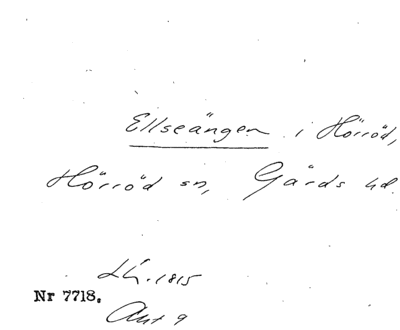 Ellseängen i Hörröd,
Hörröd sn, Gärds hd.
Lh. 1815
Nr 7718.
Akt 9